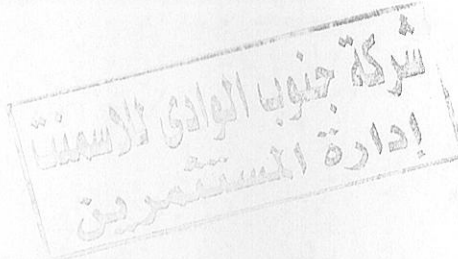 شركة جنوب الوادى للاسمنت
إدارة المستثمرين